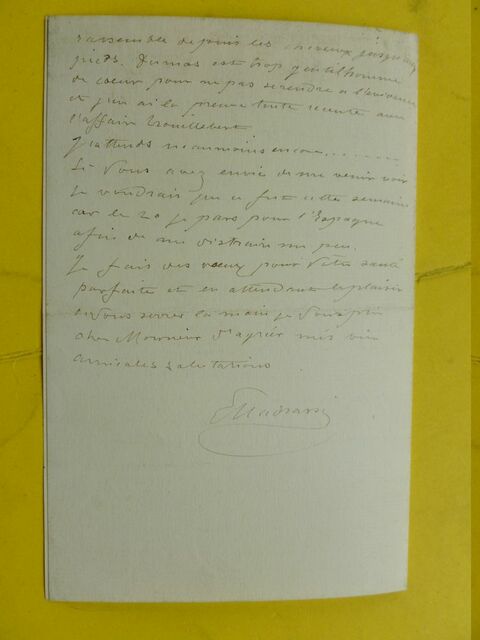 rassemble depuis les cheveux jusqu'aux
pieds. Dumas est trop gentilhomme
de coeur pour ne pas se rendre a l'evidence
et j'en ai la preuve toute recente avec
l'affair Trouillebert
J'attends neanmoins encore........
Si vous avez envie de me venir voir
je voudrais que ce fut cette semaine
car le 20 je pars pour l'Espagne
afin de me distraire un peu.
Je fais des voeux pour votre santé
parfaite et en attendant le plaisir
de vous serrer la main je vous prie
cher Monsieur d'agréer mes
amicales salutations